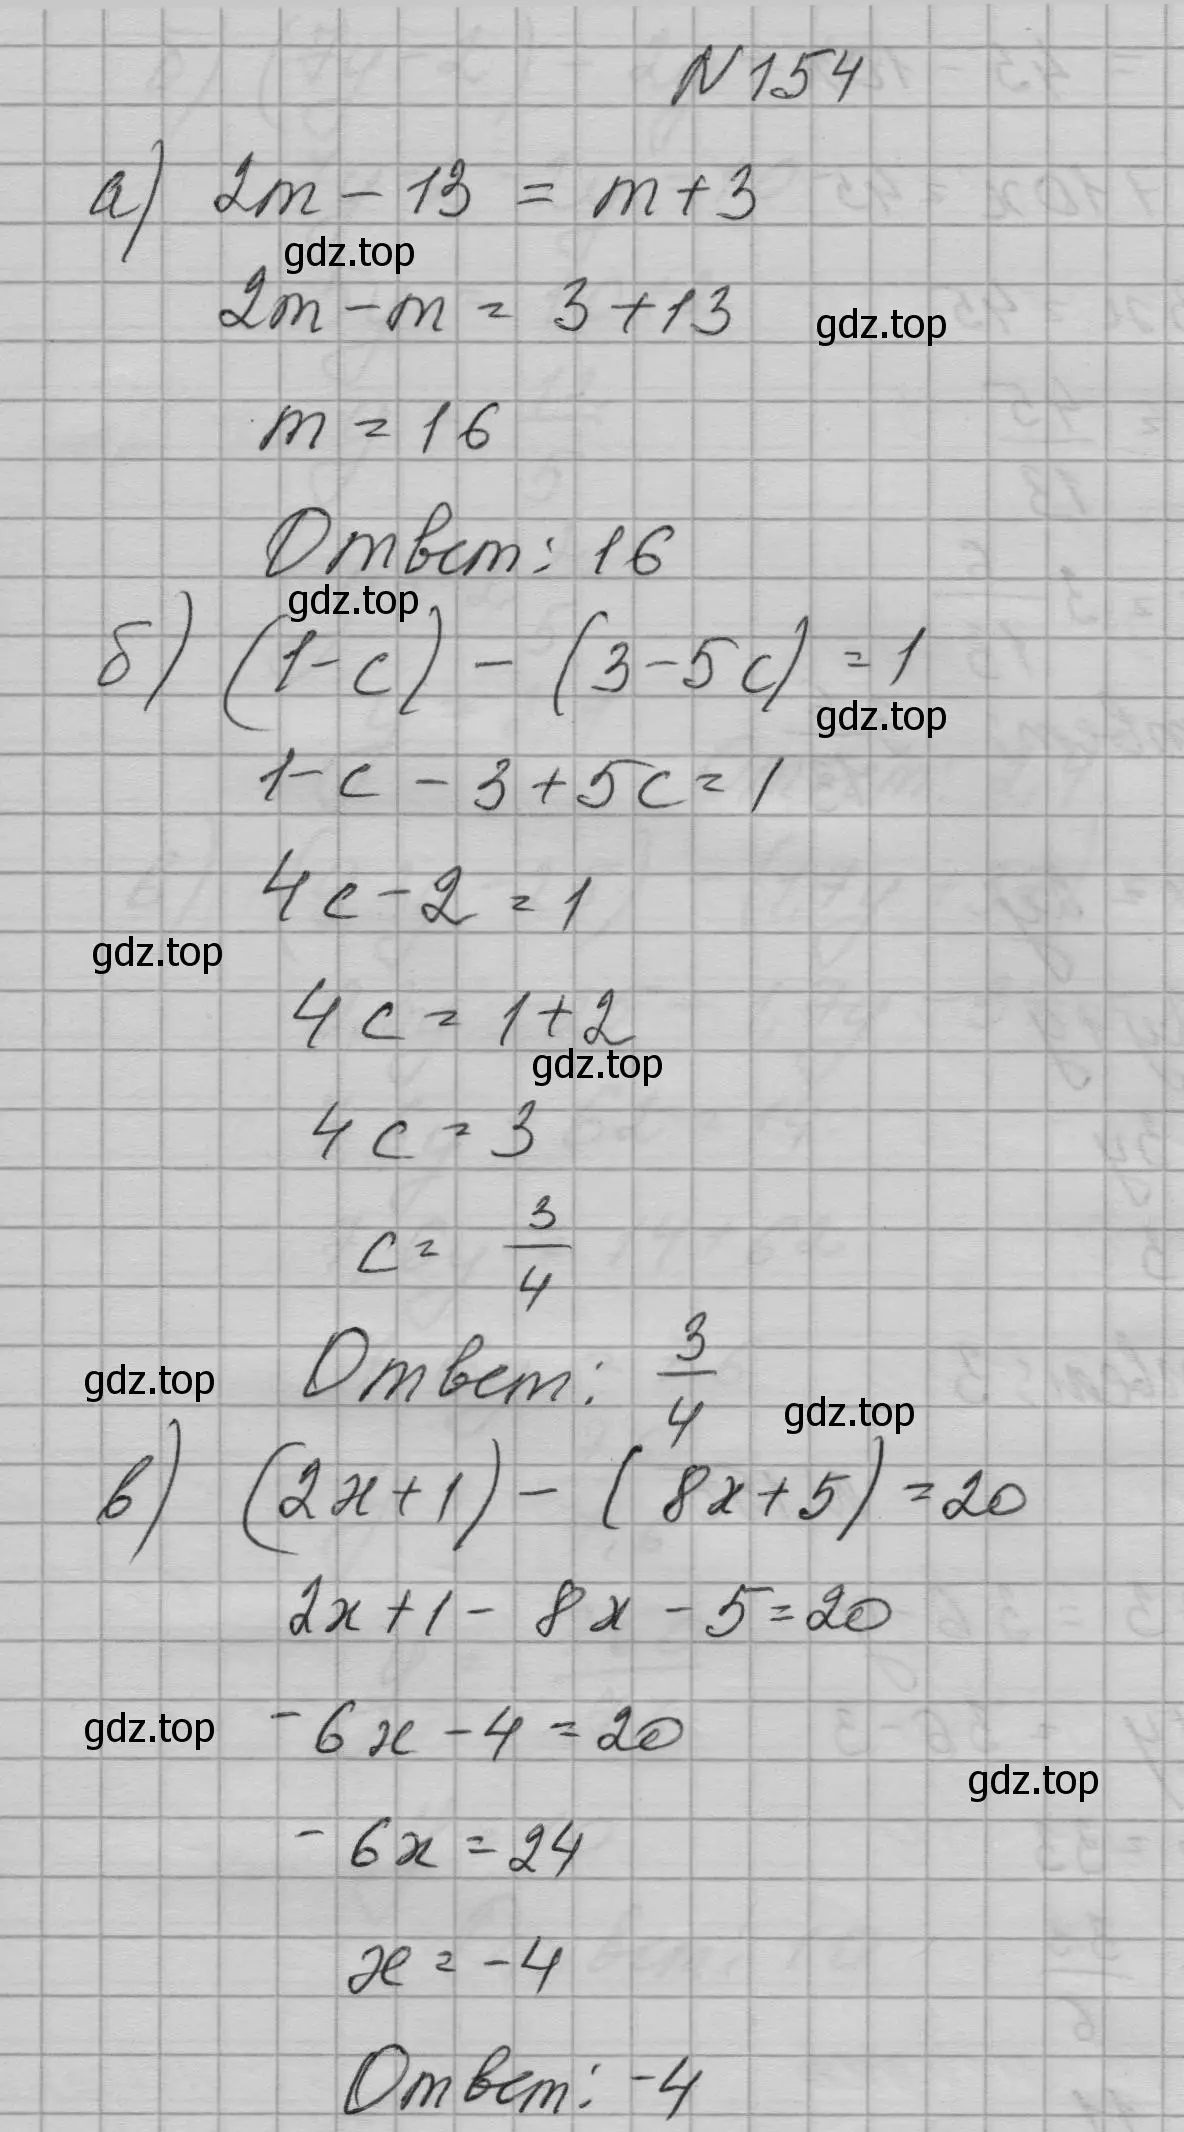 N 154
а) 2m - 13 = m + 3
gdz.top
2m - m = 3 + 13
gdz.top
m = 16
Ответ: 16
gdz.top
б) (1 - c) - (3 - 5c) = 1
gdz.top
1 - c - 3 + 5c = 1
4c - 2 = 1
gdz.top
4c = 1 + 2
gdz.top
4c = 3
c = 3/4
Ответ: 3/4
gdz.top
gdz.top
в) (2x + 1) - (8x + 5) = 20
2x + 1 - 8x - 5 = 20
gdz.top
- 6x - 4 = 20
gdz.top
- 6x = 24
x = -4
Ответ: -4